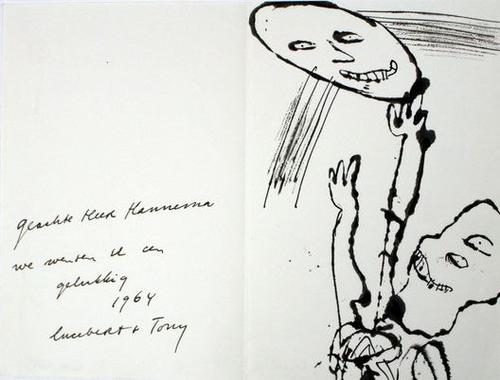 geachte Heer Hannema
we wensen U een
gelukkig
1964
Lucebert + Tony